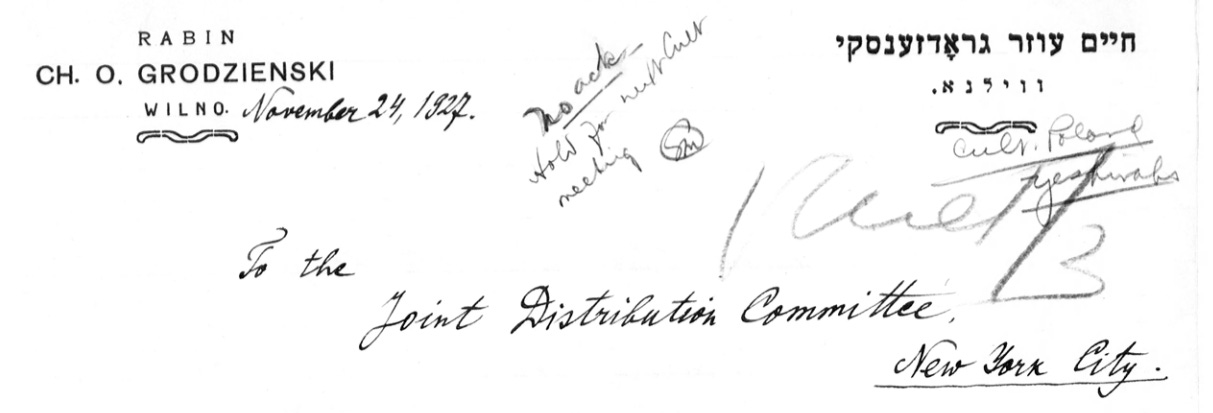 RABIN
CH. O. GRODZIENSKI
WILNO. November 24, 1927.
חיים עוזר גראָדזענסקי
ווילנא.
No ack
Hold for next Cult
meeting
Cult. Poland
yeshivahs
Cult
3
To the
Joint Distribution Committee,
New York City.